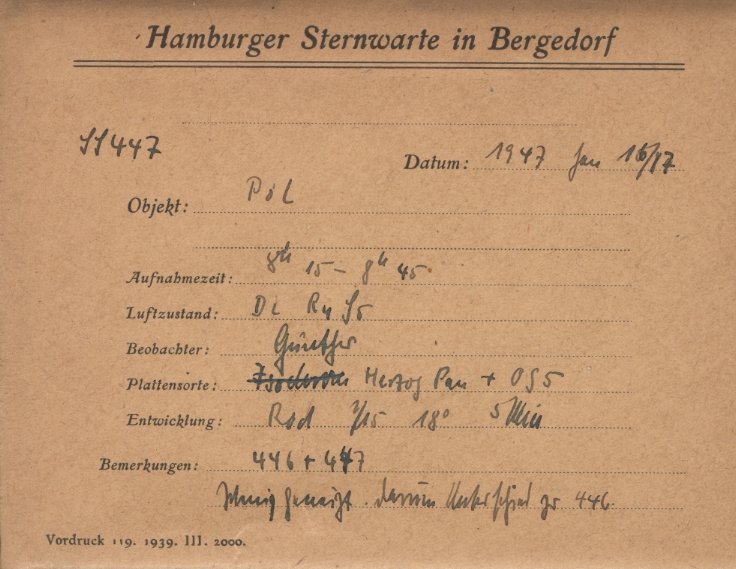 Hamburger Sternwarte in Bergedorf
SS447
Datum: 1947 Jan 16/17
Objekt: Pol
Aufnahmezeit: 8h 15 – 8h 45
Luftzustand: D2 R4 S5
Beobachter: Günther
Plattensorte: Herzog Pan + OG5
Entwicklung: Rod 1/15 18° 5 Min
Bemerkungen: 446 + 447
geneigt. darum Unterschied zu 446
Vordruck 119. 1939. III. 2000.